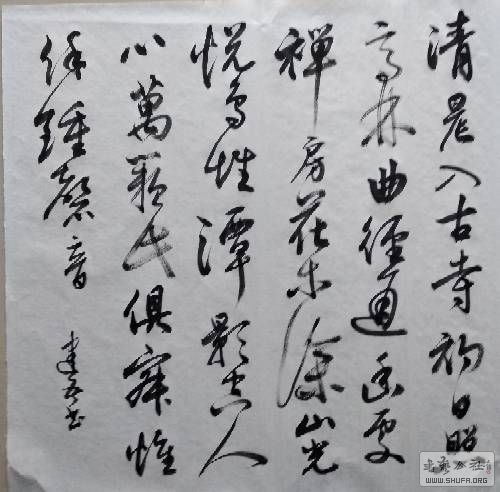 清晨入古寺初日照
高林曲徑通幽處
禪房花木深山光
悅鳥性潭影空人
心萬籟此俱寂惟
餘鍾磬音
WWW.SHUFA.ORG